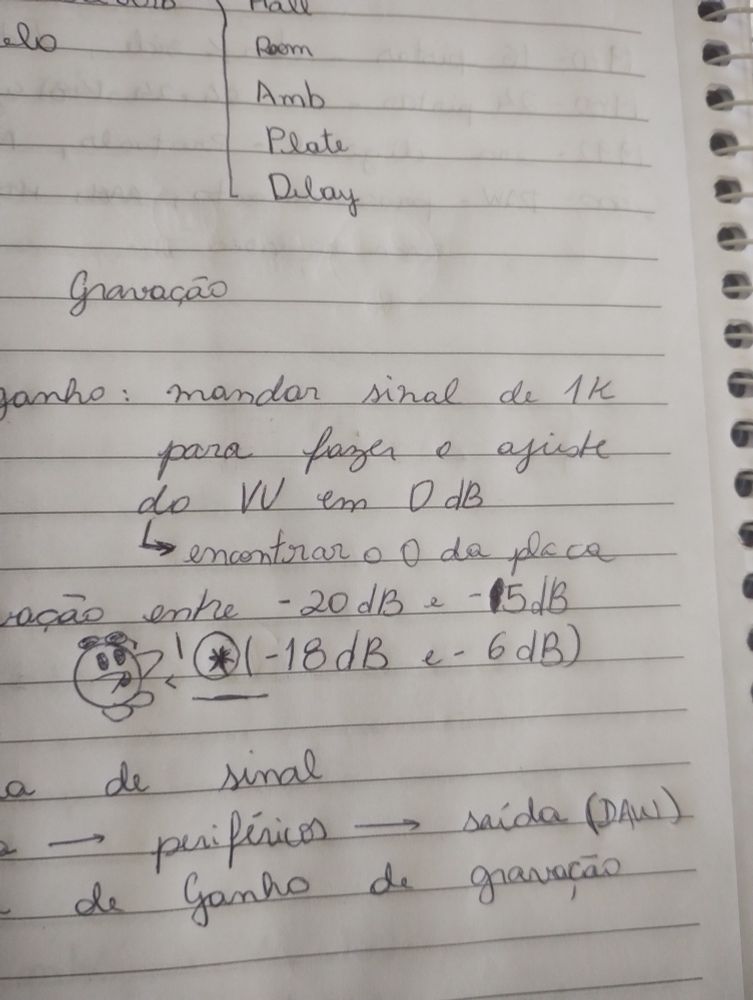 Hall
elo
Room
Amb
Plate
Delay
Gravação
ganho: mandar sinal de 1K
para fazer o ajuste
do VU em 0 dB
↳ encontrar o 0 da placa
vação entre -20 dB e -15 dB
! * (-18 dB e -6 dB)
a de sinal
→ periféricos → saída (DAW)
de Ganho de gravação